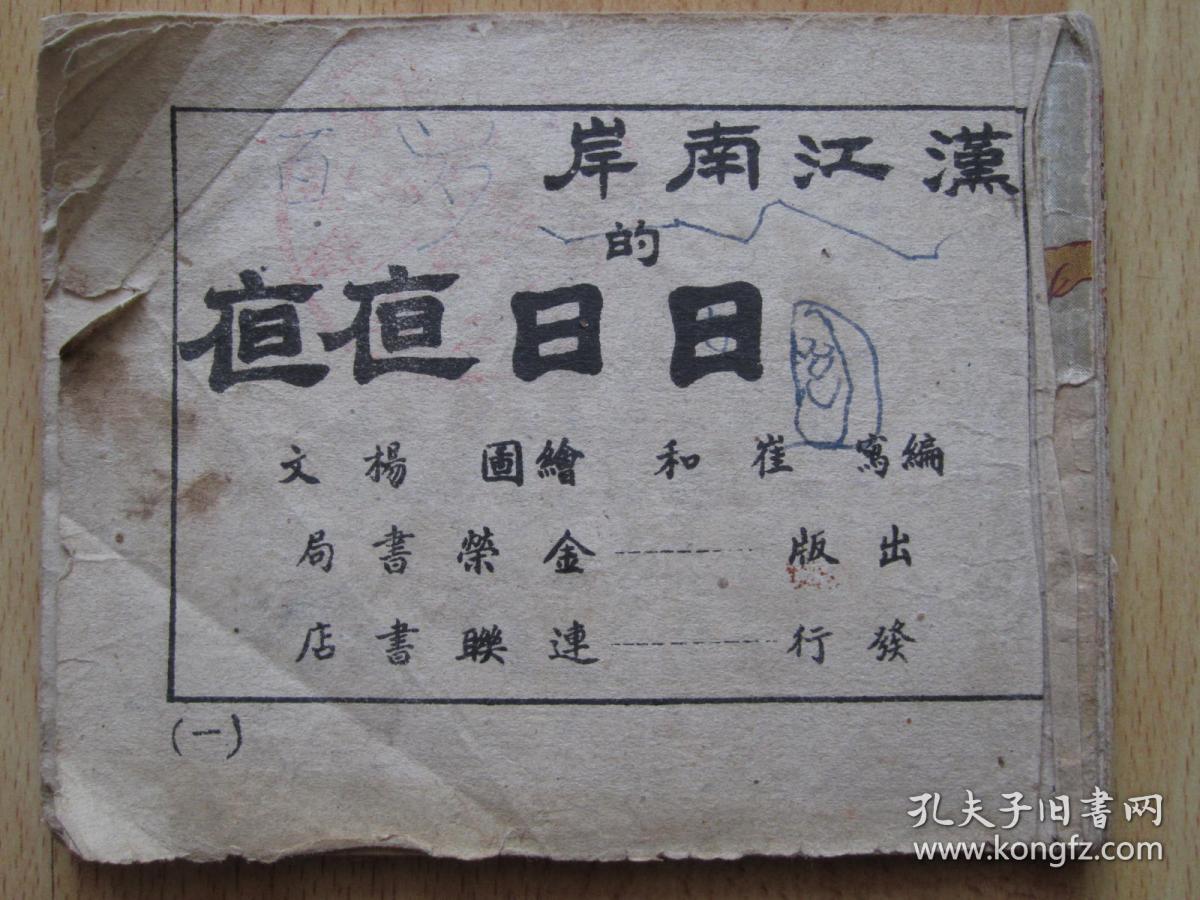 漢江南岸
的
日日夜夜
編寫 崔和 繪圖 楊文
出版————金榮書局
發行————連聯書店
(一)
孔夫子旧书网
www.kongfz.com